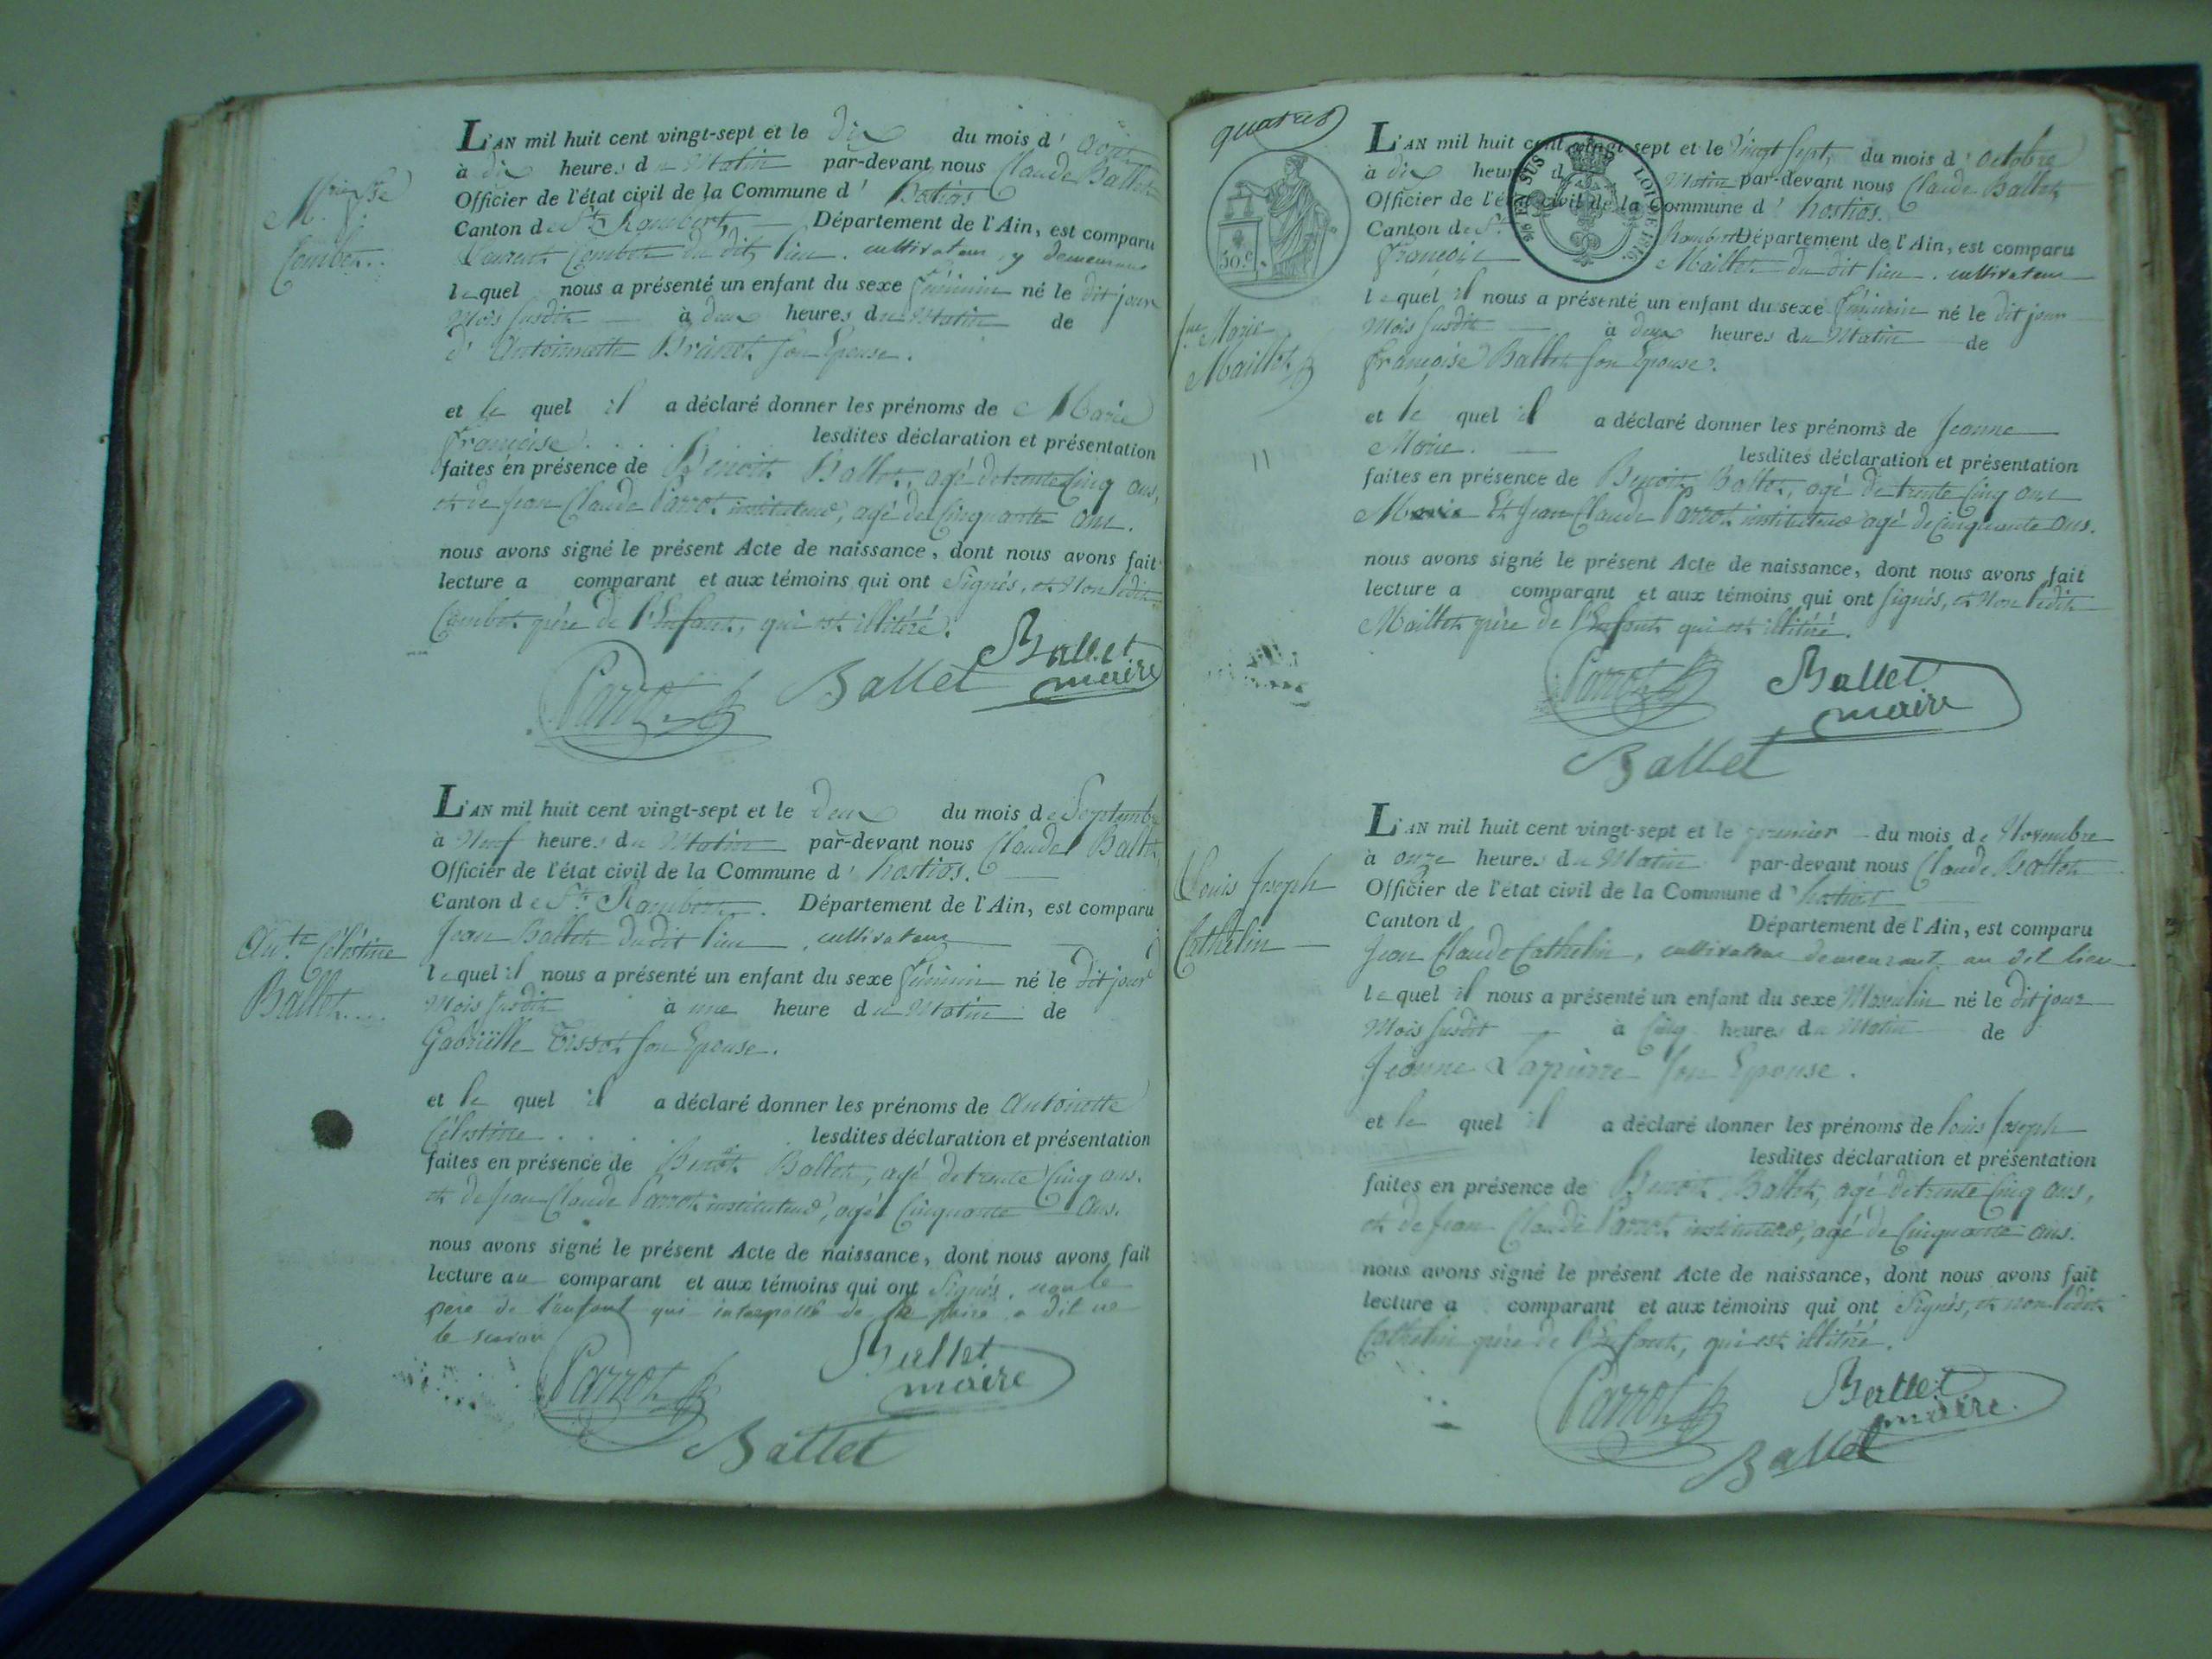 M.rie f.se
Combet..
L'AN mil huit cent vingt-sept et le dix du mois d' Aout
à dix heures du Matin par-devant nous Claude Ballet
Officier de l'état civil de la Commune d' hostias
Canton de St. Rambert, Département de l'Ain, est comparu
Laurent Combet du dit lieu. cultivateur, y demeurant
lequel nous a présenté un enfant du sexe féminin né le dit jour
Mois susdit à deux heures du Matin de
d'Antoinette son Epouse.
et le quel il a déclaré donner les prénoms de Marie
françoise. lesdites déclaration et présentation
faites en présence de Benoit Ballet, agé de trente Cinq ans,
et de Jean Claude Parrot instituteur, agé de Cinquante ans.
nous avons signé le présent Acte de naissance, dont nous avons fait
lecture a comparant et aux témoins qui ont Signés, et Non ledit
Combet père de l'Enfant, qui est illitéré.
Parrot Ballet Ballet
maire
Ant.te Célestine
Ballet....
L'AN mil huit cent vingt-sept et le deux du mois de Septembre
à Neuf heures du Matin par-devant nous Claude Ballet
Officier de l'état civil de la Commune d' hostias.
Canton de St. Rambert. Département de l'Ain, est comparu
Jean Ballet du dit lieu, cultivateur
lequel il nous a présenté un enfant du sexe féminin né le dit jour
Mois susdit à une heure du Matin de
Gabrielle Tissot son Epouse.
et le quel il a déclaré donner les prénoms de Antoinette
Célestine lesdites déclaration et présentation
faites en présence de Benoit Ballet, agé de trente Cinq ans.
et de Jean Claude Parrot instituteur, agé Cinquante Ans.
nous avons signé le présent Acte de naissance, dont nous avons fait
lecture au comparant et aux témoins qui ont Signés. non le
père de l'enfant qui interpellé de le faire a dit ne
le savoir
Parrot Ballet
maire
Ballet
quatre
50.c
96 EN SUS LOI DE 1816.
J.ne Marie
Maillet
11
L'AN mil huit cent vingt sept et le Vingt Sept du mois d' Octobre
à dix heures du Matin par-devant nous Claude Ballet
Officier de l'état civil de la Commune d' hostias.
Canton de St. Rambert Département de l'Ain, est comparu
François Maillet du dit lieu. cultivateur
lequel il nous a présenté un enfant du sexe féminin né le dit jour
Mois susdit à deux heures du Matin de
françoise Ballet son Epouse.
et le quel il a déclaré donner les prénoms de Jeanne
Marie. lesdites déclaration et présentation
faites en présence de Benoit Ballet, agé de trente Cinq ans
Et Jean Claude Parrot instituteur agé de cinquante ans.
nous avons signé le présent Acte de naissance, dont nous avons fait
lecture a comparant et aux témoins qui ont signés, et Non ledit
Maillet père de l'Enfant qui est illitéré.
Parrot Ballet
maire
Ballet
Louis Joseph
Cathelin
L'AN mil huit cent vingt-sept et le premier du mois de Novembre
à onze heures du Matin par-devant nous Claude Ballet
Officier de l'état civil de la Commune d' hostias
Canton d Département de l'Ain, est comparu
Jean Claude Cathelin, cultivateur demeurant au dit lieu
lequel il nous a présenté un enfant du sexe Masculin né le dit jour
Mois susdit à Cinq heures du Matin de
Jeanne Lapierre son Epouse.
et le quel il a déclaré donner les prénoms de louis Joseph
lesdites déclaration et présentation
faites en présence de Benoit Ballet, agé de trente Cinq ans,
et de Jean Claude Parrot instituteur, agé de Cinquante ans.
nous avons signé le présent Acte de naissance, dont nous avons fait
lecture a comparant et aux témoins qui ont Signés, et non ledit
Cathelin père de l'Enfant, qui est illitéré.
Parrot Ballet
maire.
Ballet